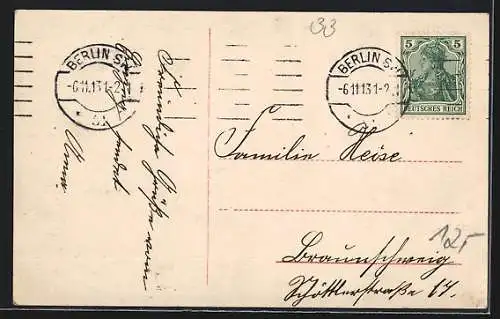 33
BERLIN S.
-6.11.13.1-2
BERLIN S.
-6.11.13.1-2
5 5
DEUTSCHES REICH
Freundliche Grüße vom
sendet
Anna.
Familie Heise
Braunschweig
Schöttlerstraße 17.
12,-